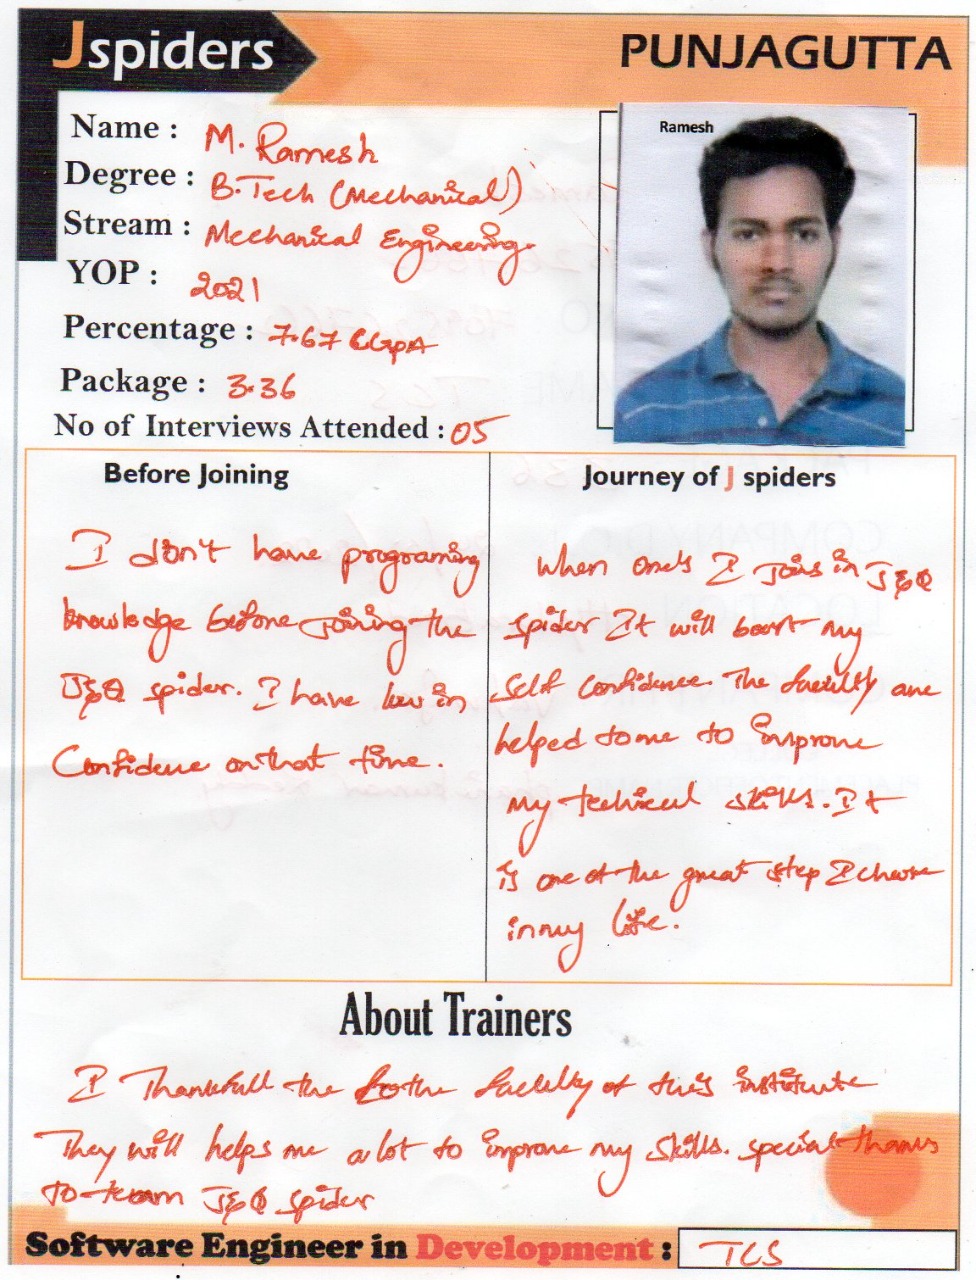 Jspiders
PUNJAGUTTA
Name : M. Ramesh
Ramesh
Degree : B.Tech (Mechanical)
Stream : Mechanical Engineering.
YOP : 2021
Percentage : 7.67 CGPA
Package : 3.36
No of Interviews Attended : 05
Before Joining
I don't have programing
knowledge before joining the
J&Q spider. I have low in
Confidence on that time.
Journey of J spiders
When one's I join in J&Q
spider It will boost my
Self Confidence. The faculty are
helped to me to improve
my techical skills. It
is one of the great step I chose
in my life.
About Trainers
I Thankfull the to the faculty of this institute
They will helps me a lot to improve my skills. special thanks
to team J&Q spider
Software Engineer in Development : TCS